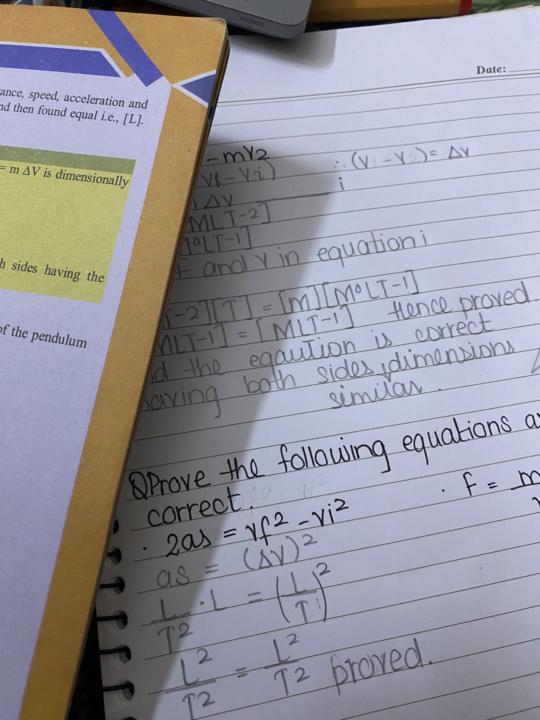 ance, speed, acceleration and
nd then found equal i.e., [L].
= m ΔV is dimensionally
h sides having the
of the pendulum
Date:
- mv2
(vf - vi) ∴ (v - v) = Δv
Δv i
MLT-2]
M°LT-1]
F and v in equation i
T-2][T] = [M][M°LT-1]
MLT-1] = [MLT-1] Hence proved
d the eqaution is correct
having both sides, dimensions
similar.
Q Prove the following equations a
correct.
. 2as = vf² - vi² . F = m
as = (Δv)²
L/T² . L = (L/T)²
L²/T² = L²/T² proved.